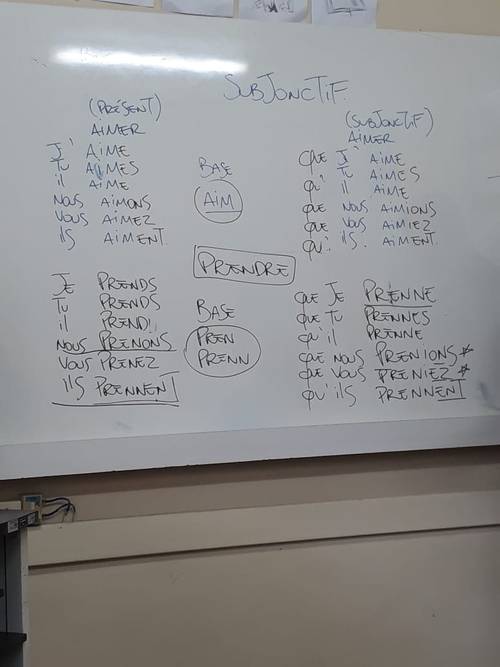 SUBJONCTIF
(PRÉSENT)
AIMER
J' AIME
TU AIMES
il AIME
NOUS AIMONS
VOUS AIMEZ
ilS AIMENT
BASE
AIM
(SUBJONCTIF)
AIMER
QUE J' AIME
QUE TU AIMES
QU' il AIME
QUE NOUS AIMIONS
QUE VOUS AIMIEZ
QU' ilS AIMENT
PRENDRE
JE PRENDS
TU PRENDS
il PREND
NOUS PRENONS
VOUS PRENEZ
ilS PRENNENT
BASE
PREN
PRENN
QUE JE PRENNE
QUE TU PRENNES
QU'il PRENNE
QUE NOUS PRENIONS*
QUE VOUS PRENIEZ*
QU'ilS PRENNENT